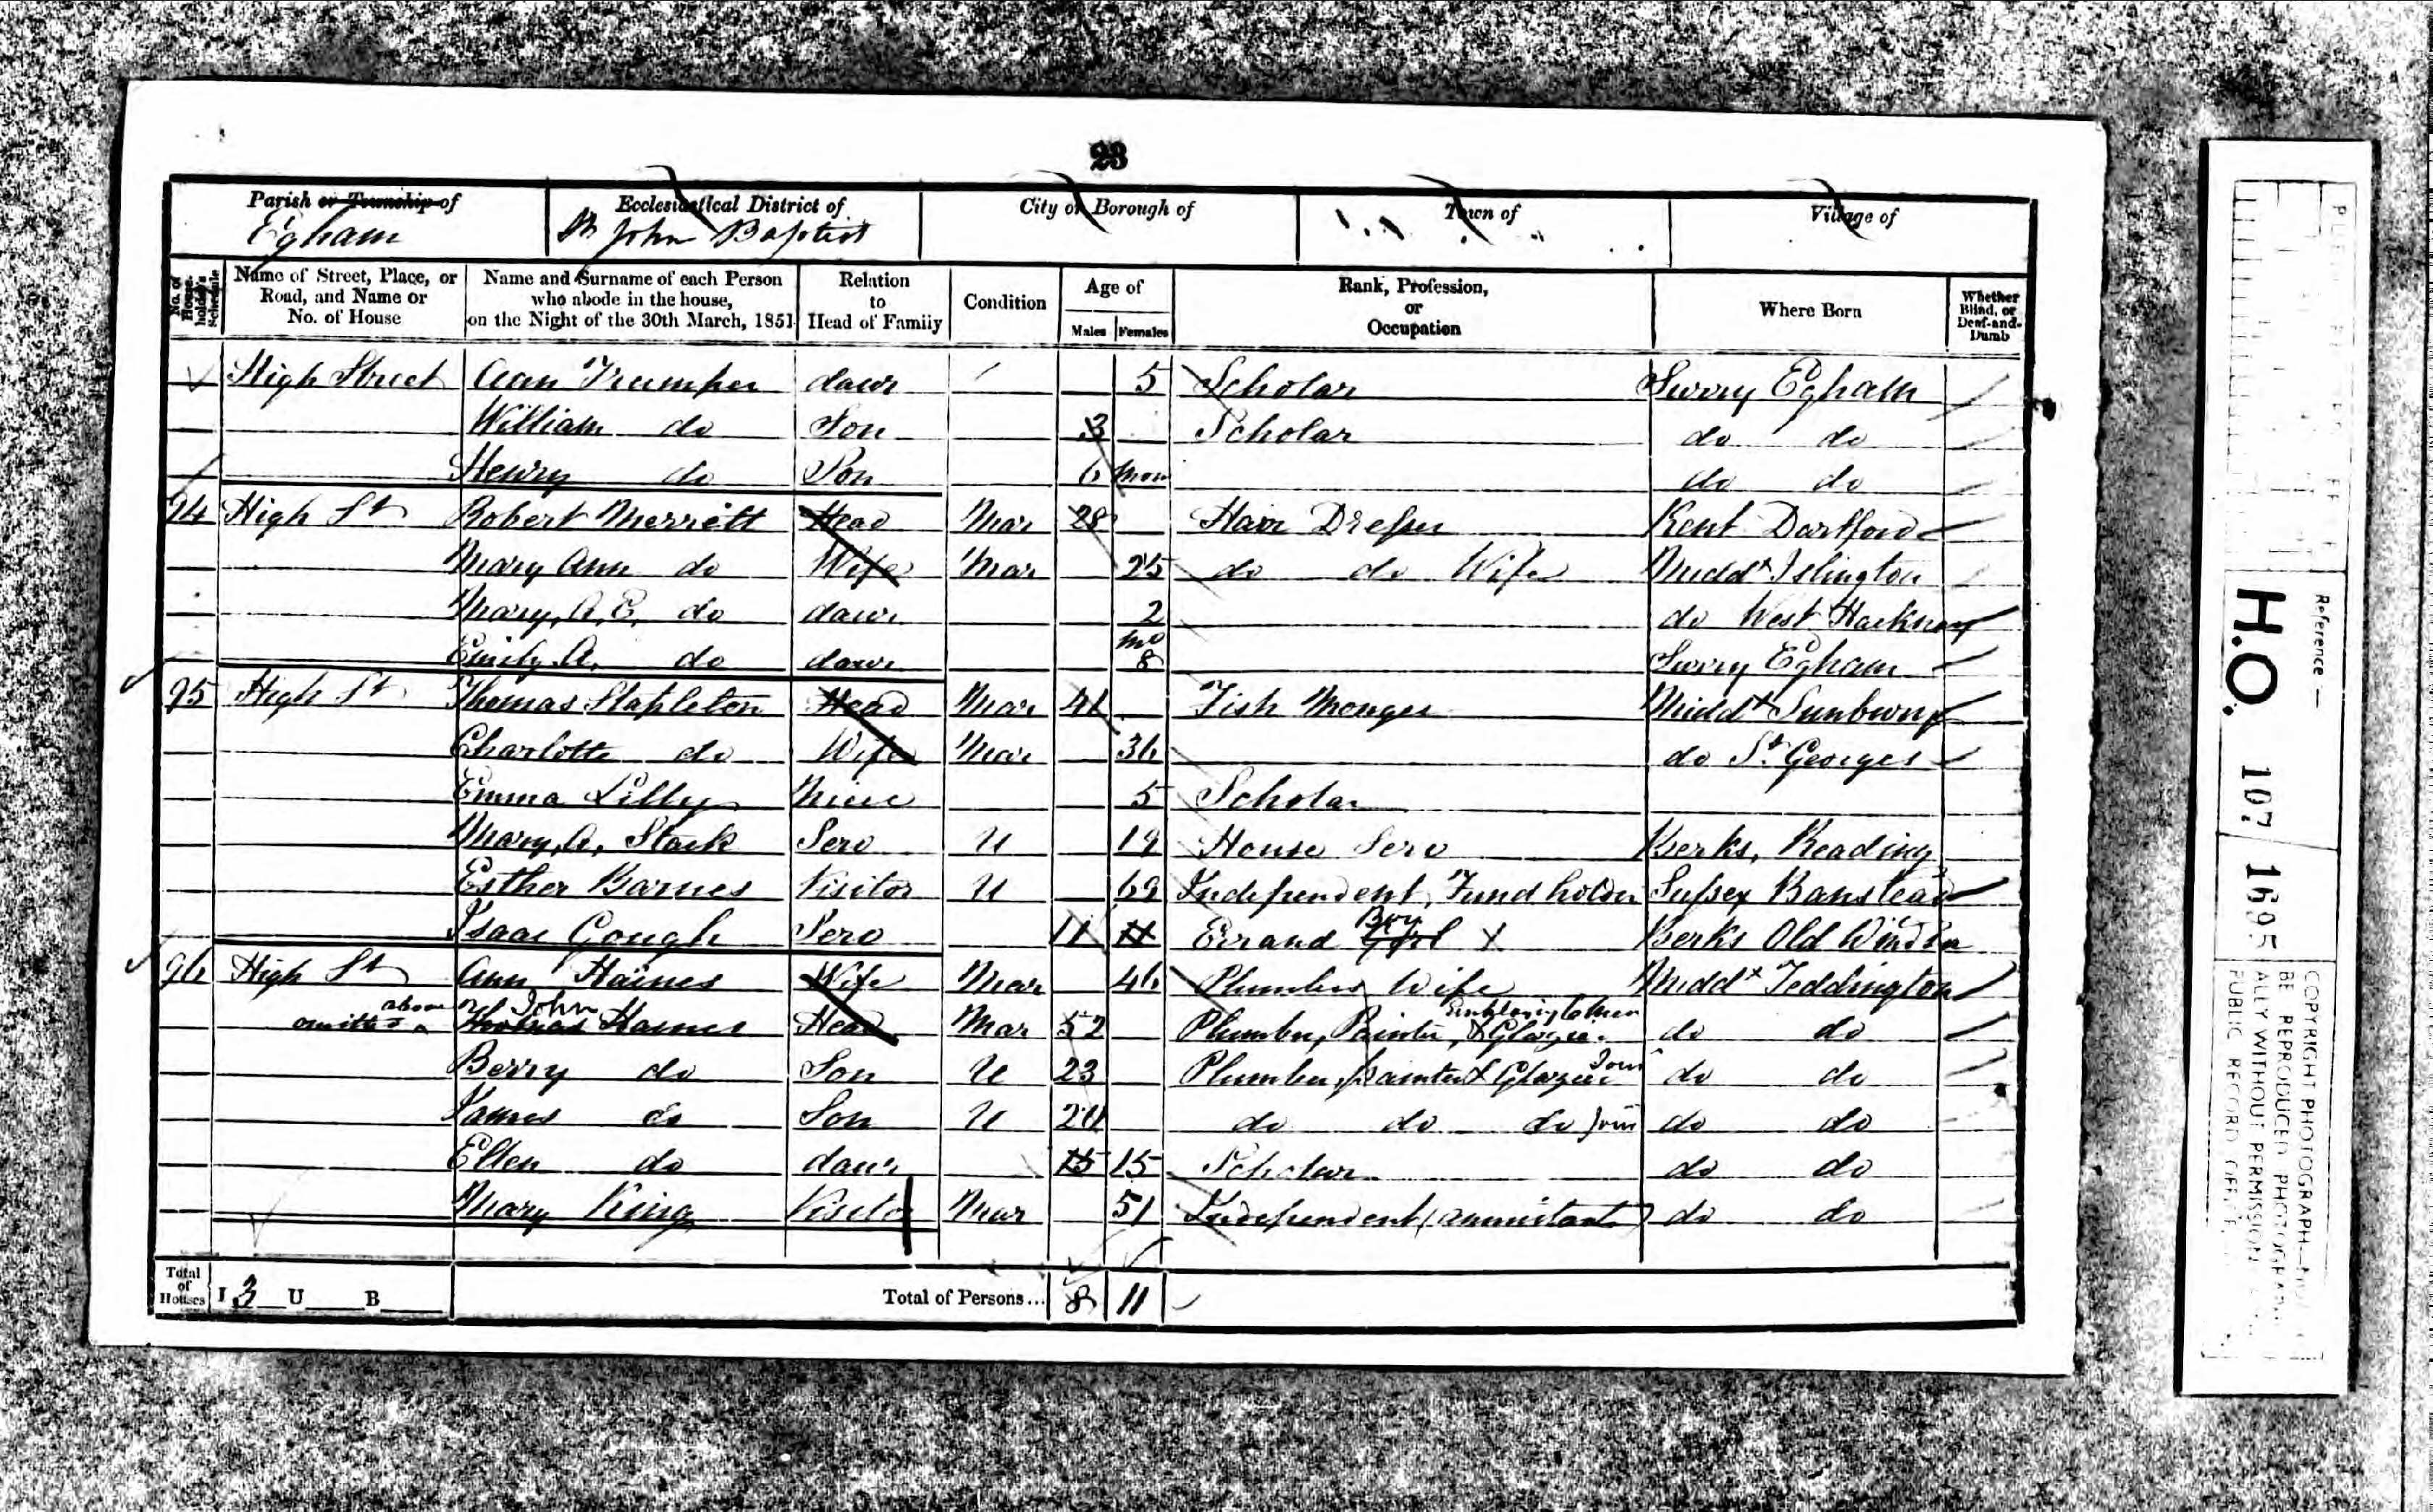 23
Parish or Township of Ecclesiastical District of City or Borough of Town of Village of
Egham St John Baptist
No. of House-holder's Schedule Name of Street, Place, or Road, and Name or No. of House Name and Surname of each Person who abode in the house, on the Night of the 30th March, 1851 Relation to Head of Family Condition Age of Males Females Rank, Profession, or Occupation Where Born Whether Blind, or Deaf-and-Dumb
High Street Ann Trumper daur 5 Scholar Surry Egham
William do Son 3 Scholar do do
Henry do Son 6 Mon do do
94 High St Robert Merrett Head Mar 28 Hair Dresser Kent Dartford
Mary Ann do Wife Mar 25 do do Wife Middx Islington
Mary, A, E, do daur 2 do West Hackney
Emily A, do daur mo 8 Surry Egham
95 High St Thomas Stapleton Head Mar 41 Fish Monger Middx Sunbury
Charlotte do Wife Mar 36 do St Georges
Emma Lilly Niece 5 Scholar
Mary, A, Stack Serv U 19 House Serv Berks, Reading
Esther Barnes Visitor U 69 Independent, Fund holder Sussex Banstead
Isaac Gough Serv 11 11 Errand Girl Boy X Berks Old Windsor
96 High St Ann Haines Wife Mar 46 Plumbers Wife Middx Teddington
omitted above John Haines Head Mar 52 Plumber, Painter, & Glazier do do
Berry do Son U 23 Plumber, painter & Glazier Jour do do
James do Son U 20 do do do Jour do do
Ellen do daur 15 15 Scholar do do
Mary King Visitor Mar 51 Independent (annuitant) do do
Total of Houses I 3 U B Total of Persons... 8 11
Reference —
H.O. 107/1695
COPYRIGHT PHOTOGRAPH—NOT TO
BE REPRODUCED PHOTOGRAPHIC-
ALLY WITHOUT PERMISSION
PUBLIC RECORD OFFICE